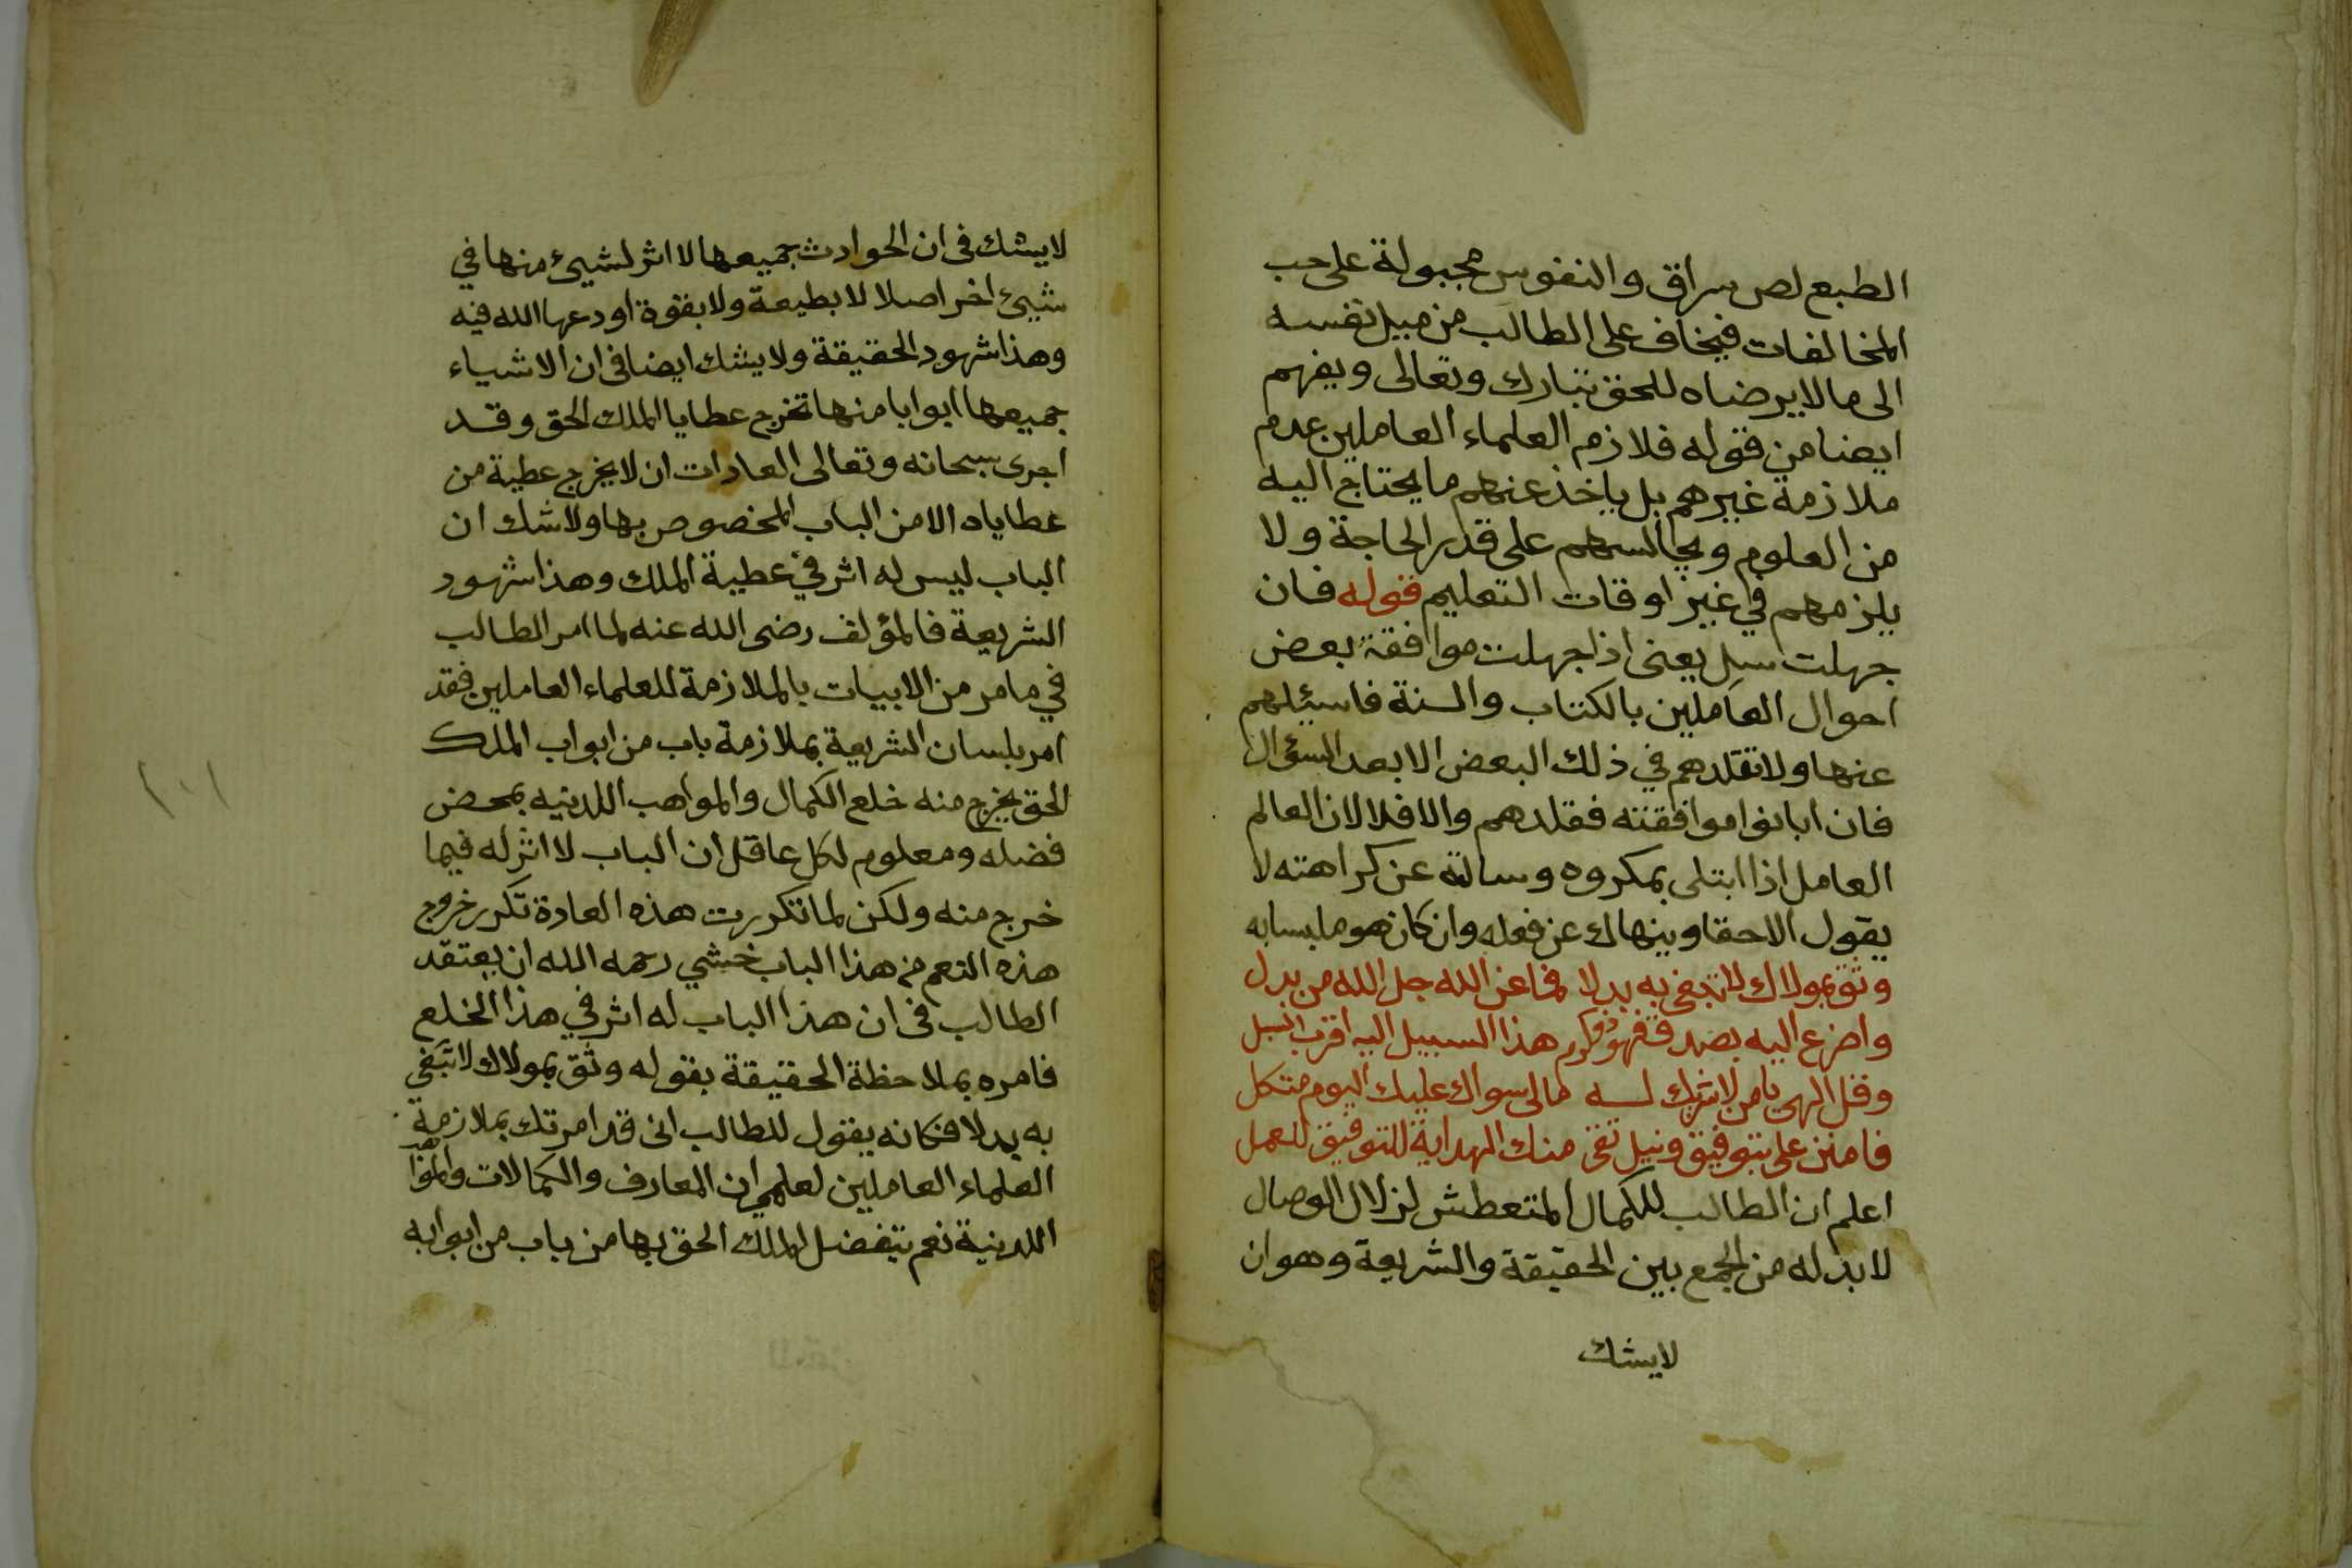 الطبع لص سراق والنفوس مجبولة على حب
المخالفات فيخاف على الطالب من ميل نفسه
الى ما لا يرضاه للحق تبارك وتعالى ويفهم
ايضا من قوله فلازم العلماء العاملين عدم
ملازمة غيرهم بل ياخذ عنهم ما يحتاج اليه
من العلوم ويجالسهم على قدر الحاجة ولا
يلزمهم في غير اوقات التعليم قوله فان
جهلت سل يعنى اذا جهلت موافقة بعض
احوال العاملين بالكتاب والسنة فاسئلهم
عنها ولا تقلدهم في ذلك البعض الا بعد السؤال
فان ابانوا موافقته فقلدهم والا فلا لان العالم
العامل اذا ابتلى بمكروه وسالته عن كراهته لا
يقول الا حقا وينهاك عن فعله وان كان هو
وثق بمولاك لا تبغى به بدلا فما عن الله جل الله من بدل
واضرع اليه بصدق فهو ذو كرم هذا السبيل اليه اقرب السبل
وقل الهى يا من لا شريك لــه مالى سواك عليك اليوم متكل
فامنن على بتوفيق ونيل تقى منك الهداية للتوفيق للعمل
اعلم ان الطالب للكمال المتعطش لزلال الوصال
لا بد له من الجمع بين الحقيقة والشريعة وهو ان
لا يشك
لا يشك فى ان الحوادث جميعها لا اثر لشيئ منها في
شيئ اخر اصلا لا بطبيعة ولا بقوة اودعها الله فيه
وهذا شهود الحقيقة ولا يشك ايضا فى ان الاشياء
جميعها ابوابا منها تخرج عطايا الملك الحق وقد
اجرى سبحانه وتعالى العادات ان لا يخرج عطية من
عطاياه الا من الباب المخصوص بها ولا شك ان
الباب ليس له اثر في عطية الملك وهذا شهود
الشريعة فالمؤلف رضى الله عنه لما امر الطالب
في ما مر من الابيات بالملازمة للعلماء العاملين فقد
امر بلسان الشريعة بملازمة باب من ابواب الملك
الحق يخرج منه خلع الكمال والمواهب اللدنيه بمحض
فضله ومعلوم لكل عاقل ان الباب لا اثر له فيما
خرج منه ولكن لما تكررت هذه العادة تكرر خروج
هذه النعم من هذا الباب خشي رحمه الله ان يعتقد
الطالب فى ان هذا الباب له اثر في هذا الخلع
فامره بملاحظة الحقيقة بقوله وثق بمولاك لا تبغي
به بدلا فكانه يقول للطالب انى قد امرتك بملازمة
العلماء العاملين لعلمى ان المعارف والكمالات والمواهب
اللدنية نعم يتفضل الملك الحق بها من باب من ابوابه
١٠١